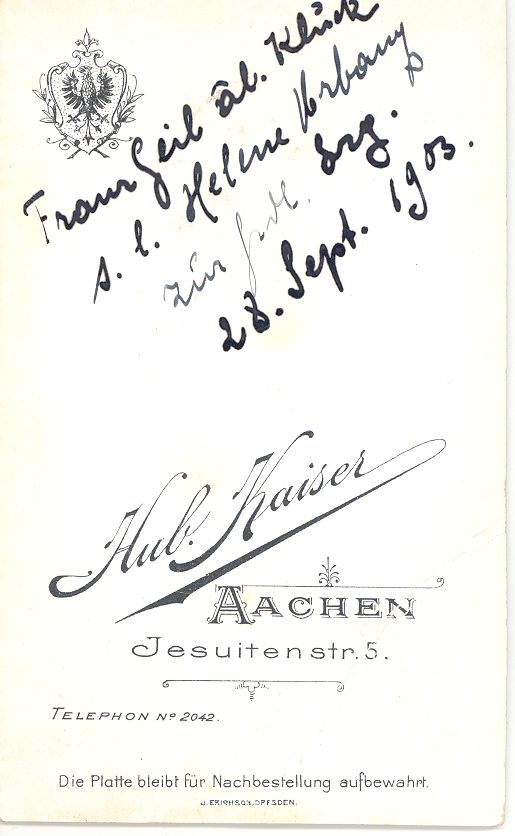 Franz Geib äb. Klück
s. l. Helene Urbany
zur frdl. Erg.
28. Sept. 1903.
Hub. Kaiser
AACHEN
Jesuitenstr. 5.
TELEPHON Nº 2042.
Die Platte bleibt für Nachbestellung aufbewahrt.
J. ERICHSON, DRESDEN.